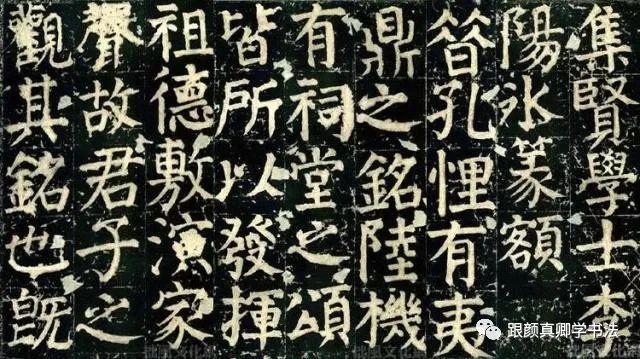 集賢學士李
陽冰篆額
昔孔悝有夷
鼎之銘陸機
有祠堂之頌
皆所以發揮
祖德敷演家
聲故君子之
觀其銘也既
跟颜真卿学书法